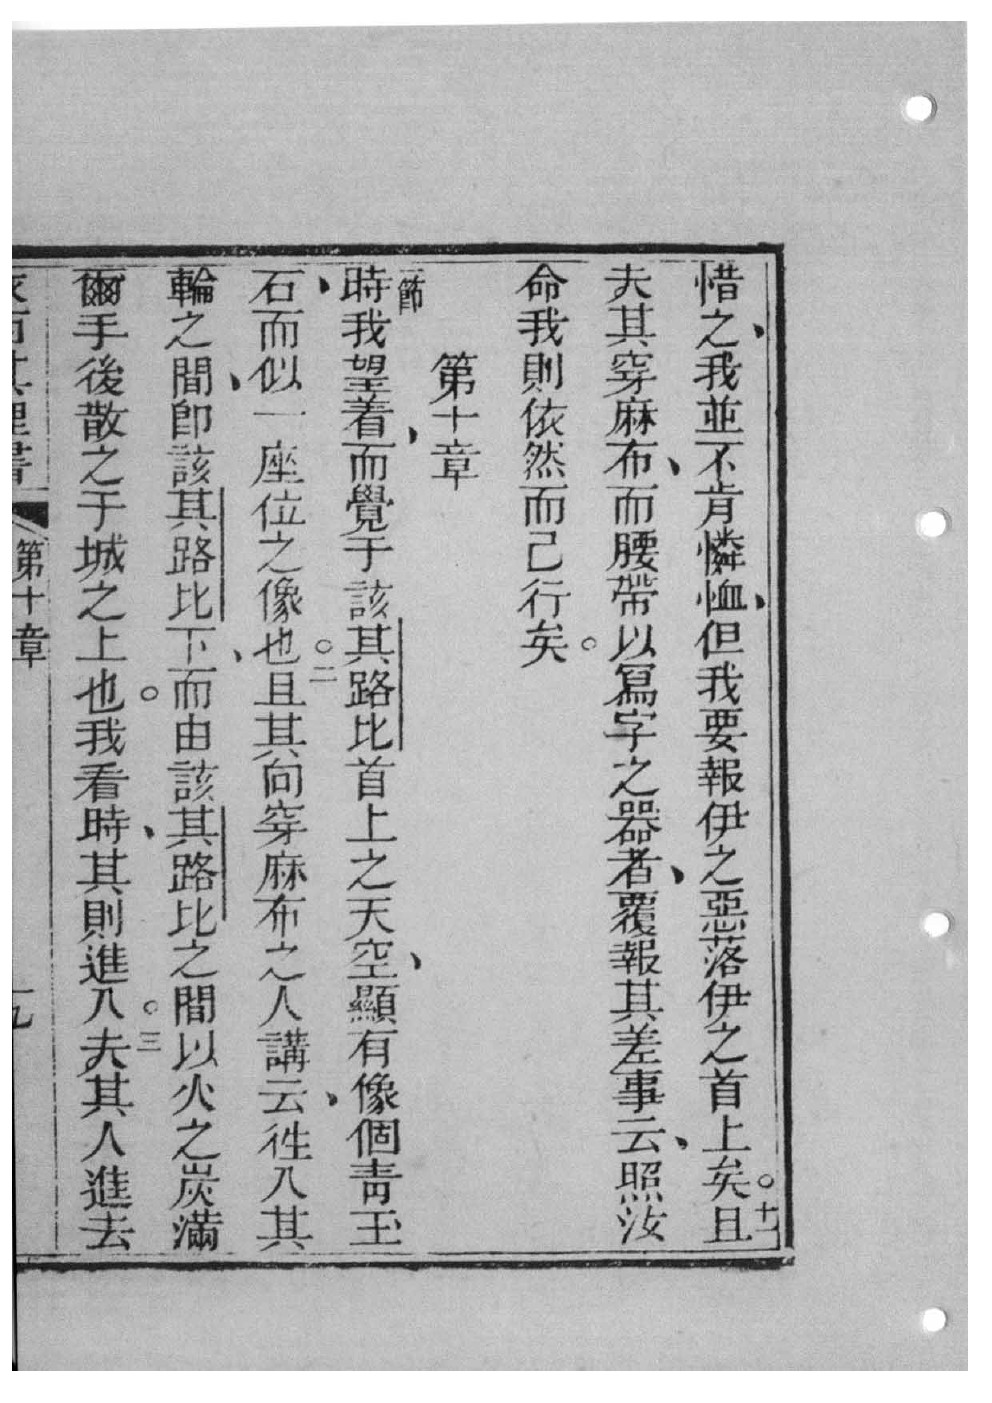 惜之、我並不肯憐恤、但我要報伊之惡落伊之首上矣。十一且
夫其穿麻布、而腰帶以寫字之器者、覆報其差事云、照汝
命我則依然而已行矣。
第十章
節時我望着、而覺于該其路比首上之天空、顯有像個靑玉
石、而似一座位之像也。二且其向穿麻布之人講云、徃入其
輪之間、卽該其路比下、而由該其路比之間以火之炭滿
爾手後散之于城之上也。我看時、其則進入。三夫其人進去
第十章